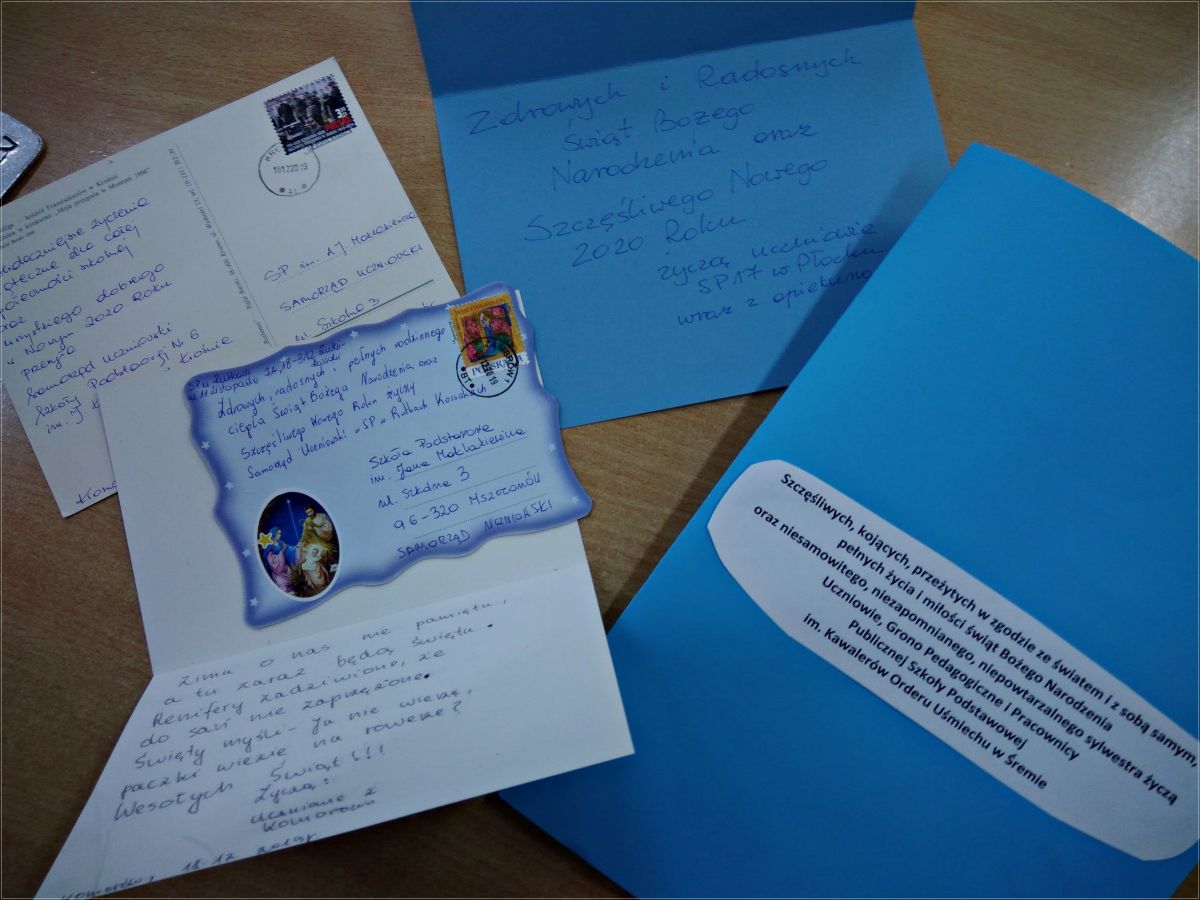 kościół Franciszkanów w Krośnie
w konkursie „Moja przygoda w Muzeum 1996”
życzenia
dla całej
szkolnej
oraz
wszystkiego dobrego
w Nowym 2020 Roku
Samorząd Uczniowski
Szkoły Podstawowej Nr 6
w Krośnie
im. J
POLSKA
181220 19
SP im. A.J. Makłakiewicza
SAMORZĄD UCZNIOWSKI
ul. Szkolna 3
Zdrowych i Radosnych
Świąt Bożego
Narodzenia oraz
Szczęśliwego Nowego
2020 Roku
życzą uczniowie
SP 17 w Płocku
wraz z
SP w Rutkach
Zdrowych i radosnych, pełnych rodzinnego
ciepła Świąt Bożego Narodzenia oraz
Szczęśliwego Nowego Roku życzy
Samorząd Uczniowski w SP w Rutkach Kossakach
POLSKA
Szkoła Podstawowa
im. Jana Makłakiewicza
ul. Szkolna 3
96-320 Mszczonów
SAMORZĄD UCZNIOWSKI
Zima o nas nie pamięta,
a tu zaraz będą święta.
Renifery zadziwione, że
do sań nie zaprzężone.
Święty myśli - Ja nie wierzę,
paczki wiezie na rowerze?
Wesołych Świąt!!!
Życzą:
uczniowie z
Komorowa
Komorów, 18.12.2019r
Szczęśliwych, kojących, przeżytych w zgodzie ze światem i z sobą samym,
pełnych życia i miłości świąt Bożego Narodzenia
oraz niesamowitego, niezapomnianego, niepowtarzalnego sylwestra życzą
Uczniowie, Grono Pedagogiczne i Pracownicy
Publicznej Szkoły Podstawowej
im. Kawalerów Orderu Uśmiechu w Śremie